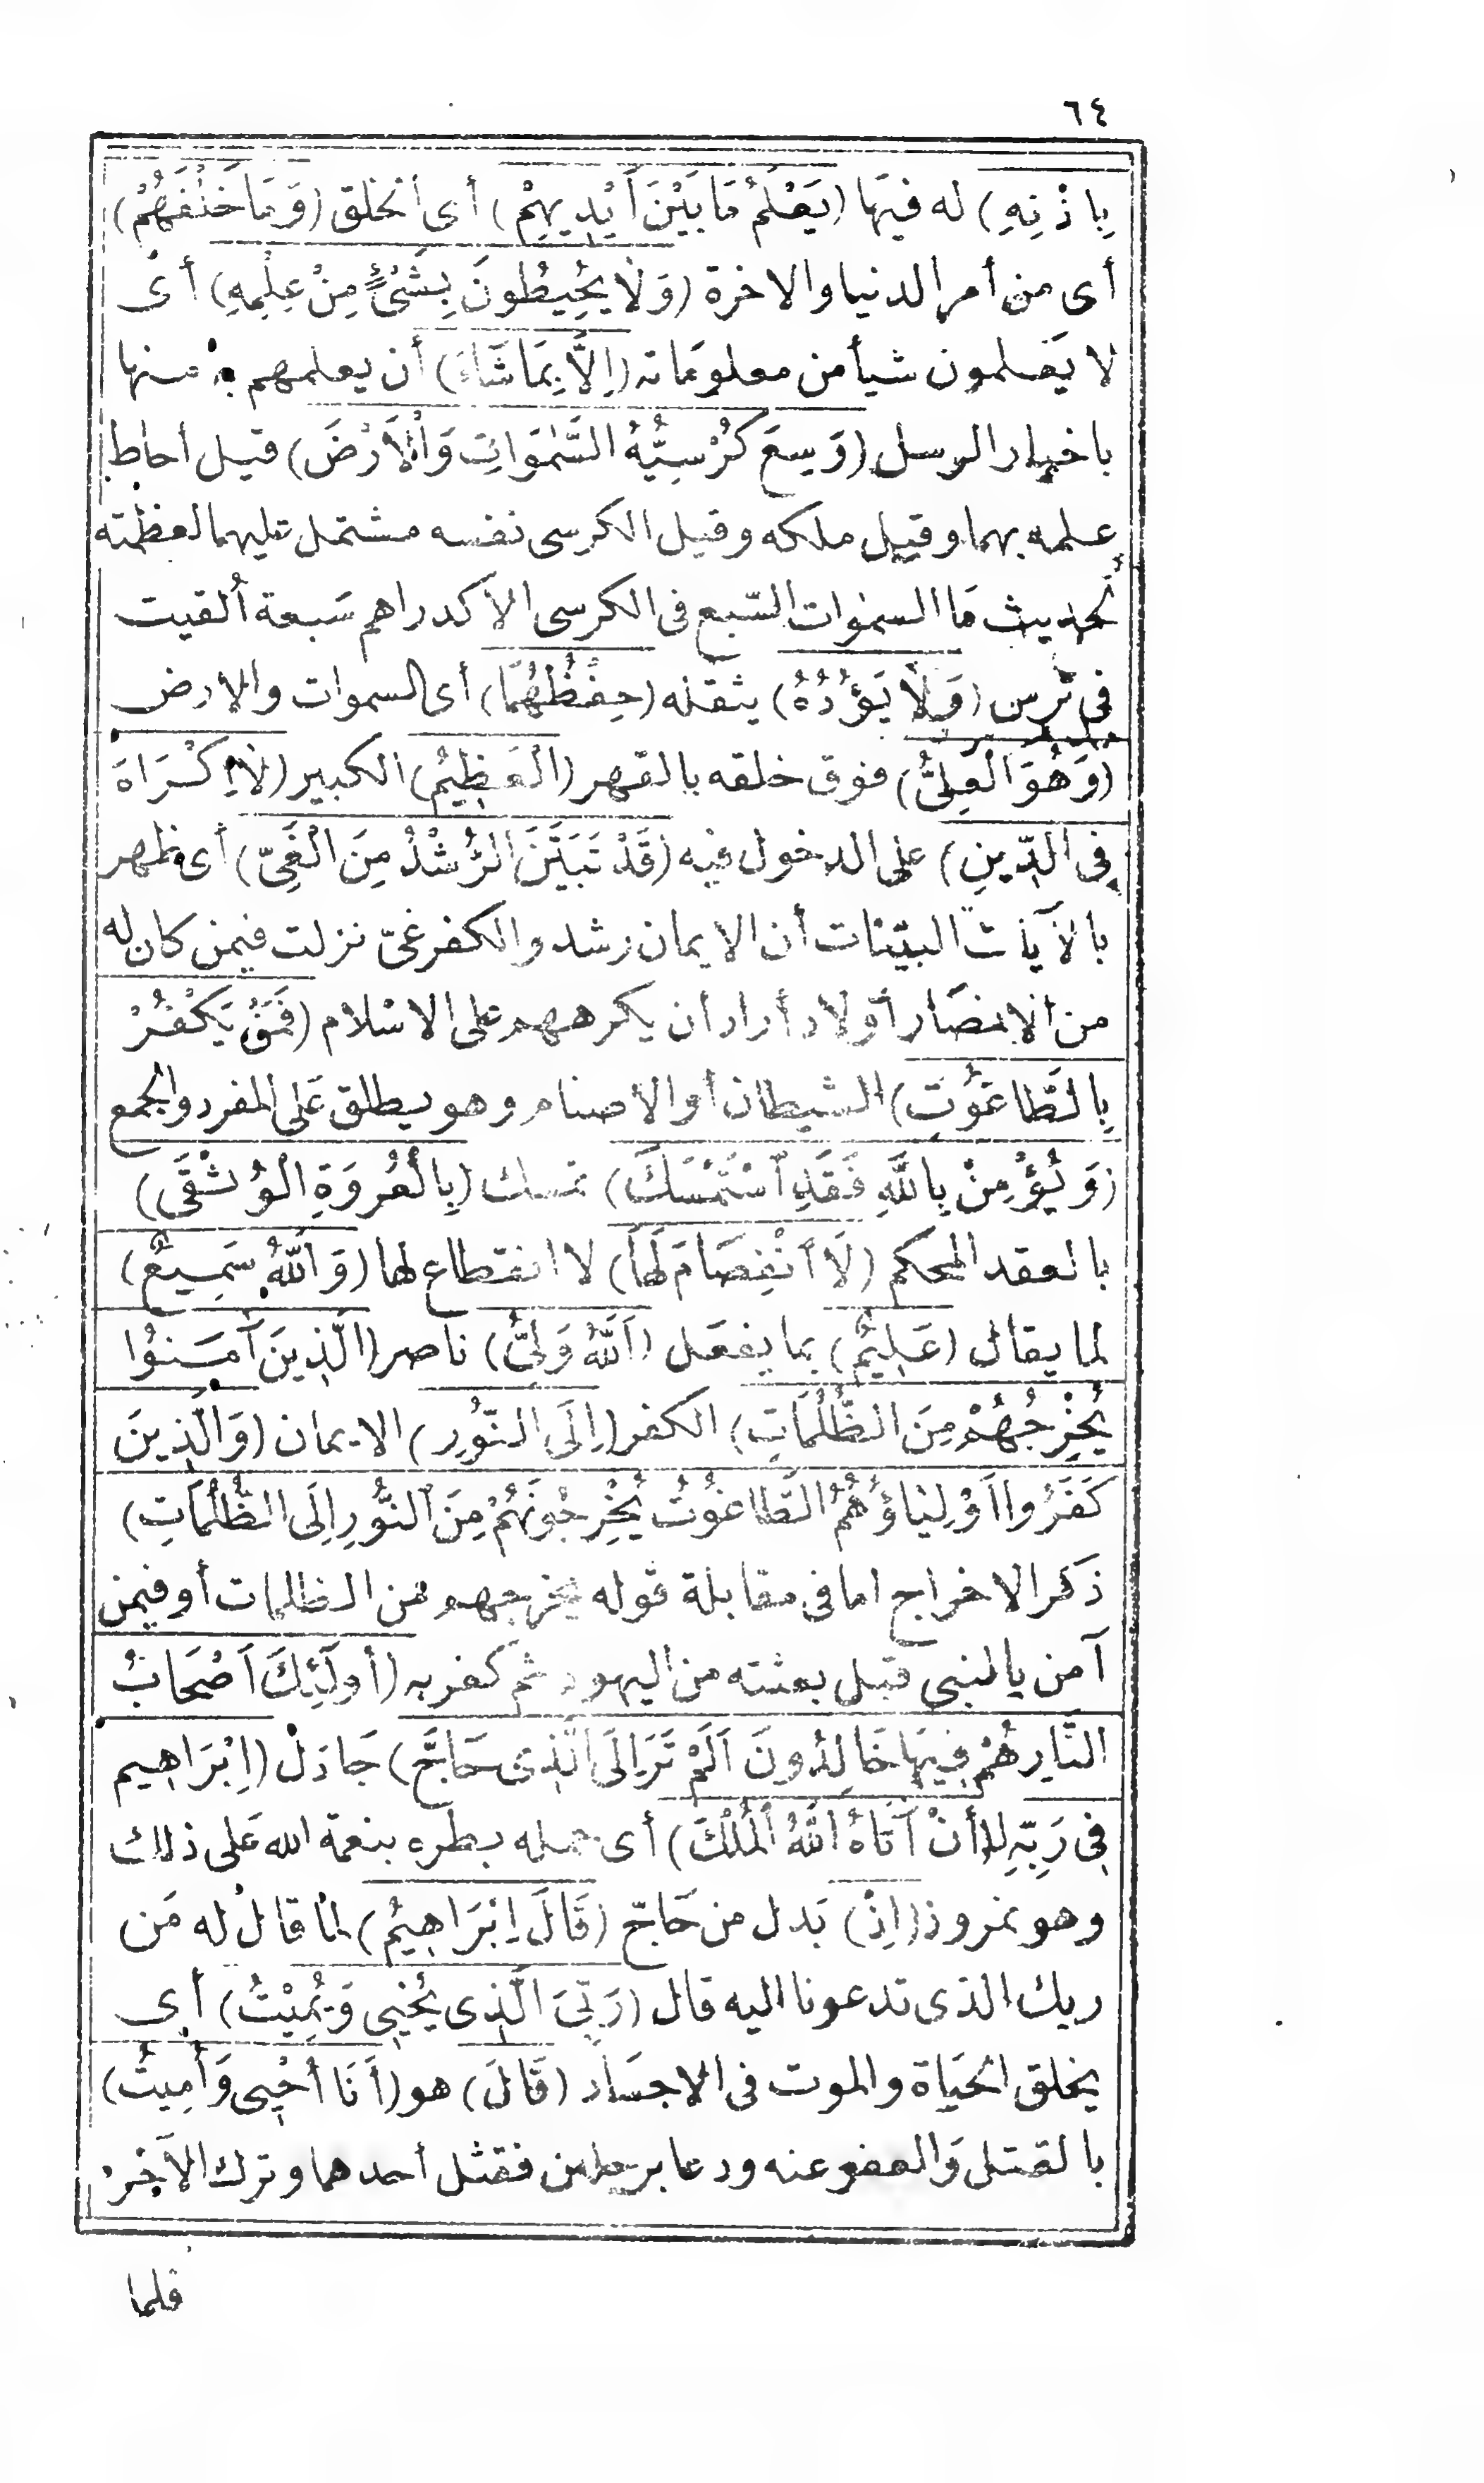 ٦٤
بِاِذْنِهِ) له فيها (يَعْلَمُ مَا بَيْنَ أَيْدِيهِمْ) أى الخلق (وَمَا خَلْفَهُمْ)
أى من أمر الدنيا والاخرة (وَلَا يُحِيطُونَ بِشَىْءٍ مِنْ عِلْمِهِ) أى
لا يعلمون شيأ من معلوماته (اِلَّا بِمَا شَاءَ) أن يعلمهم به منها
باخبار الرسل (وَسِعَ كُرْسِيُّهُ السَّمٰوَاتِ وَالْأَرْضَ) قيل أحاط
علمه بهما وقيل ملكه وقيل الكرسى نفسه مشتمل عليهما لعظمته
لحديث ما السموات السّبع فى الكرسى الا كدراهم سبعة أُلقيت
فى ترس (وَلَا يَؤُدُهُ) يثقله (حِفْظُهُمَا) أى السموات والارض
(وَهُوَ الْعَلِىُّ) فوق خلقه بالقهر (الْعَظِيمُ) الكبير (لَا اِكْرَاهَ
فِى الدِّينِ) على الدخول فيه (قَدْ تَبَيَّنَ الرُّشْدُ مِنَ الْغَىِّ) أى ظهر
بالآيات البيّنات أن الايمان رشد والكفر غىّ نزلت فيمن كان له
من الانصار أولاد أراد أن يكرههم على الاسلام (فَمَنْ يَكْفُرْ
بِالطَّاغُوتِ) الشيطان أو الاصنام وهو يطلق على المفرد والجمع
(وَيُؤْمِنْ بِاللَّهِ فَقَدِ اسْتَمْسَكَ) تمسك (بِالْعُرْوَةِ الْوُثْقَى)
بالعقد المحكم (لَا انْفِصَامَ لَهَا) لا انقطاع لها (وَاللَّهُ سَمِيعٌ)
لما يقال (عَلِيمٌ) بما يفعل (اَللَّهُ وَلِىُّ) ناصر (الَّذِينَ آمَنُوا
يُخْرِجُهُمْ مِنَ الظُّلُمَاتِ) الكفر (اِلَى النُّورِ) الايمان (وَالَّذِينَ
كَفَرُوا اَوْلِيَاؤُهُمُ الطَّاغُوتُ يُخْرِجُونَهُمْ مِنَ النُّورِ اِلَى الظُّلُمَاتِ)
ذكر الاخراج اما فى مقابلة قوله يخرجهم من الظلمات أو فيمن
آمن بالنبى قبل بعثته من اليهود ثم كفر به (أُولَئِكَ اَصْحَابُ
النَّارِ هُمْ فِيهَا خَالِدُونَ اَلَمْ تَرَ اِلَى الَّذِى حَاجَّ) جَادَلَ (اِبْرَاهِيم
فِى رَبِّهِ لـ (أَنْ آتَاهُ اللَّهُ الْمُلْكَ) أى حمله بطره بنعمة الله على ذلك
وهو نمروذ (اِذْ) بدل من حَاجّ (قَالَ اِبْرَاهِيمُ) لما قال له مَن
ربك الذى تدعونا اليه قال (رَبِّىَ الَّذِى يُحْيِى وَيُمِيتُ) أى
يخلق الحياة والموت فى الاجساد (قَالَ) هو (أَنَا أُحْيِى وَأُمِيتُ)
بالقتل والعفو عنه ودعا برجلين فقتل أحدهما وترك الآخر
فلما